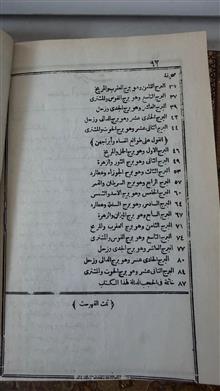 ٩٢
صحيفة
٣٤ البرج الثامن وهو برج العقرب والمريخ
٣٧ البرج التاسع وهو برج القوس والمشترى
٣٩ البرج العاشر وهو برج الجدى وزحل
٤١ البرج الحادى عشر وهو برج الدالى وزحل
٤٤ البرج الثانى عشر وهو برج الحوت والمشترى
(القول على طوالع النساء وأبراجهن)
٤٦ البرج الاول وهو برج الحمل والمريخ
٤٩ البرج الثانى الثور والزهرة
٥٢ البرج الثالث برج الجوزاء وعطارد
٥٧ البرج الرابع وهو برج السرطان والقمر
٦٠ البرج الخامس وهو برج الاسد والشمس
٦٤ البرج السادس وهو برج السنبلة وعطارد
٦٧ البرج السابع وهو برج الميزان والزهرة
٧٠ البرج الثامن وهو برج العقرب والمريخ
٧٢ البرج التاسع وهو برج القوس والمشترى
٧٧ البرج العاشر وهو برج الجدى وزحل
البرج الحادى عشر وهو برج الدالى وزحل
٨٤ البرج الثانى عشر وهو برج الحوت والمشترى
٨٧ خاتمة فى لهذا الكتاب
(تمت الفهرست)